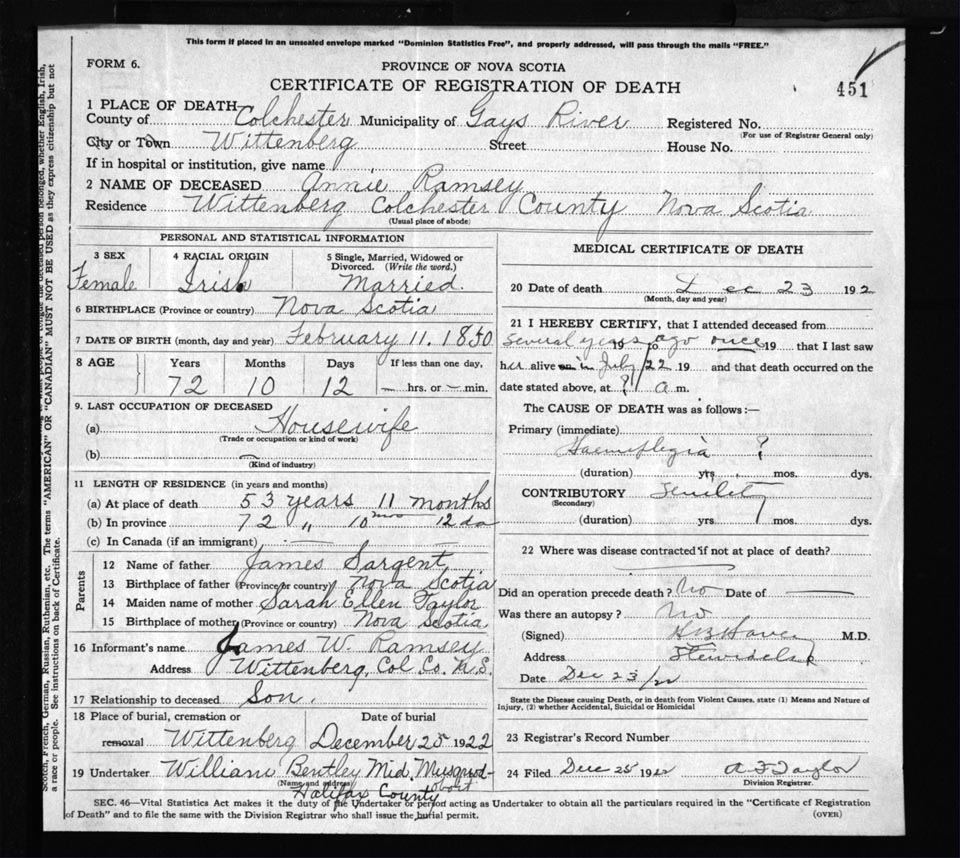 This form if placed in an unsealed envelope marked "Dominion Statistics Free", and properly addressed, will pass through the mails "FREE."
FORM 6.
PROVINCE OF NOVA SCOTIA
CERTIFICATE OF REGISTRATION OF DEATH
451
1 PLACE OF DEATH
County of Colchester Municipality of Gays River Registered No.
(For use of Registrar General only)
City or Town Wittenberg Street House No.
If in hospital or institution, give name
2 NAME OF DECEASED Annie Ramsey
Residence Wittenberg Colchester County Nova Scotia
(Usual place of abode)
PERSONAL AND STATISTICAL INFORMATION
3 SEX 4 RACIAL ORIGIN 5 Single, Married, Widowed or Divorced. (Write the word.)
Female Irish Married.
6 BIRTHPLACE (Province or country) Nova Scotia
7 DATE OF BIRTH (month, day and year) February 11. 1850.
8 AGE Years Months Days If less than one day,
72 10 12 — hrs. or — min.
9. LAST OCCUPATION OF DECEASED
(a) Housewife
(Trade or occupation or kind of work)
(b)
(Kind of industry)
11 LENGTH OF RESIDENCE (in years and months)
(a) At place of death 53 years 11 months
(b) In province 72 " 10 mos 12 da
(c) In Canada (if an immigrant)
Parents
12 Name of father James Sargent
13 Birthplace of father (Province or country) Nova Scotia
14 Maiden name of mother Sarah Ellen Taylor
15 Birthplace of mother (Province or country) Nova Scotia
16 Informant's name James W. Ramsey
Address Wittenberg, Col Co. N.S.
17 Relationship to deceased Son.
18 Place of burial, cremation or removal Wittenberg Date of burial December 25 1922
19 Undertaker William Bentley Mid. Musquodoboit
(Name and address)
Halifax County
MEDICAL CERTIFICATE OF DEATH
20 Date of death Dec 23 192
(Month, day and year)
21 I HEREBY CERTIFY, that I attended deceased from
several years 19 ago once 19 that I last saw
her alive on in July/22 19 and that death occurred on the
date stated above, at ? a m.
The CAUSE OF DEATH was as follows:—
Primary (immediate)
Haemiplegia ?
(duration) yrs. mos. dys.
CONTRIBUTORY Senility
(Secondary)
(duration) yrs. mos. dys.
22 Where was disease contracted if not at place of death?
Did an operation precede death? No Date of —
Was there an autopsy? No
(Signed) M.D.
Address
Date Dec 23/22
State the Disease causing Death, or in death from Violent Causes, state (1) Means and Nature of
Injury, (2) whether Accidental, Suicidal or Homicidal
23 Registrar's Record Number
24 Filed Dec 25 1922 A F Taylor
Division Registrar.
SEC. 46—Vital Statistics Act makes it the duty of the Undertaker or person acting as Undertaker to obtain all the particulars required in the "Certificate of Registration
of Death" and to file the same with the Division Registrar who shall issue the burial permit.
(OVER)
French, German, Russian, Ruthenian, etc. The terms "AMERICAN" or "CANADIAN" MUST NOT BE USED as they express citizenship but not
a race or people. See instructions on back of Certificate.